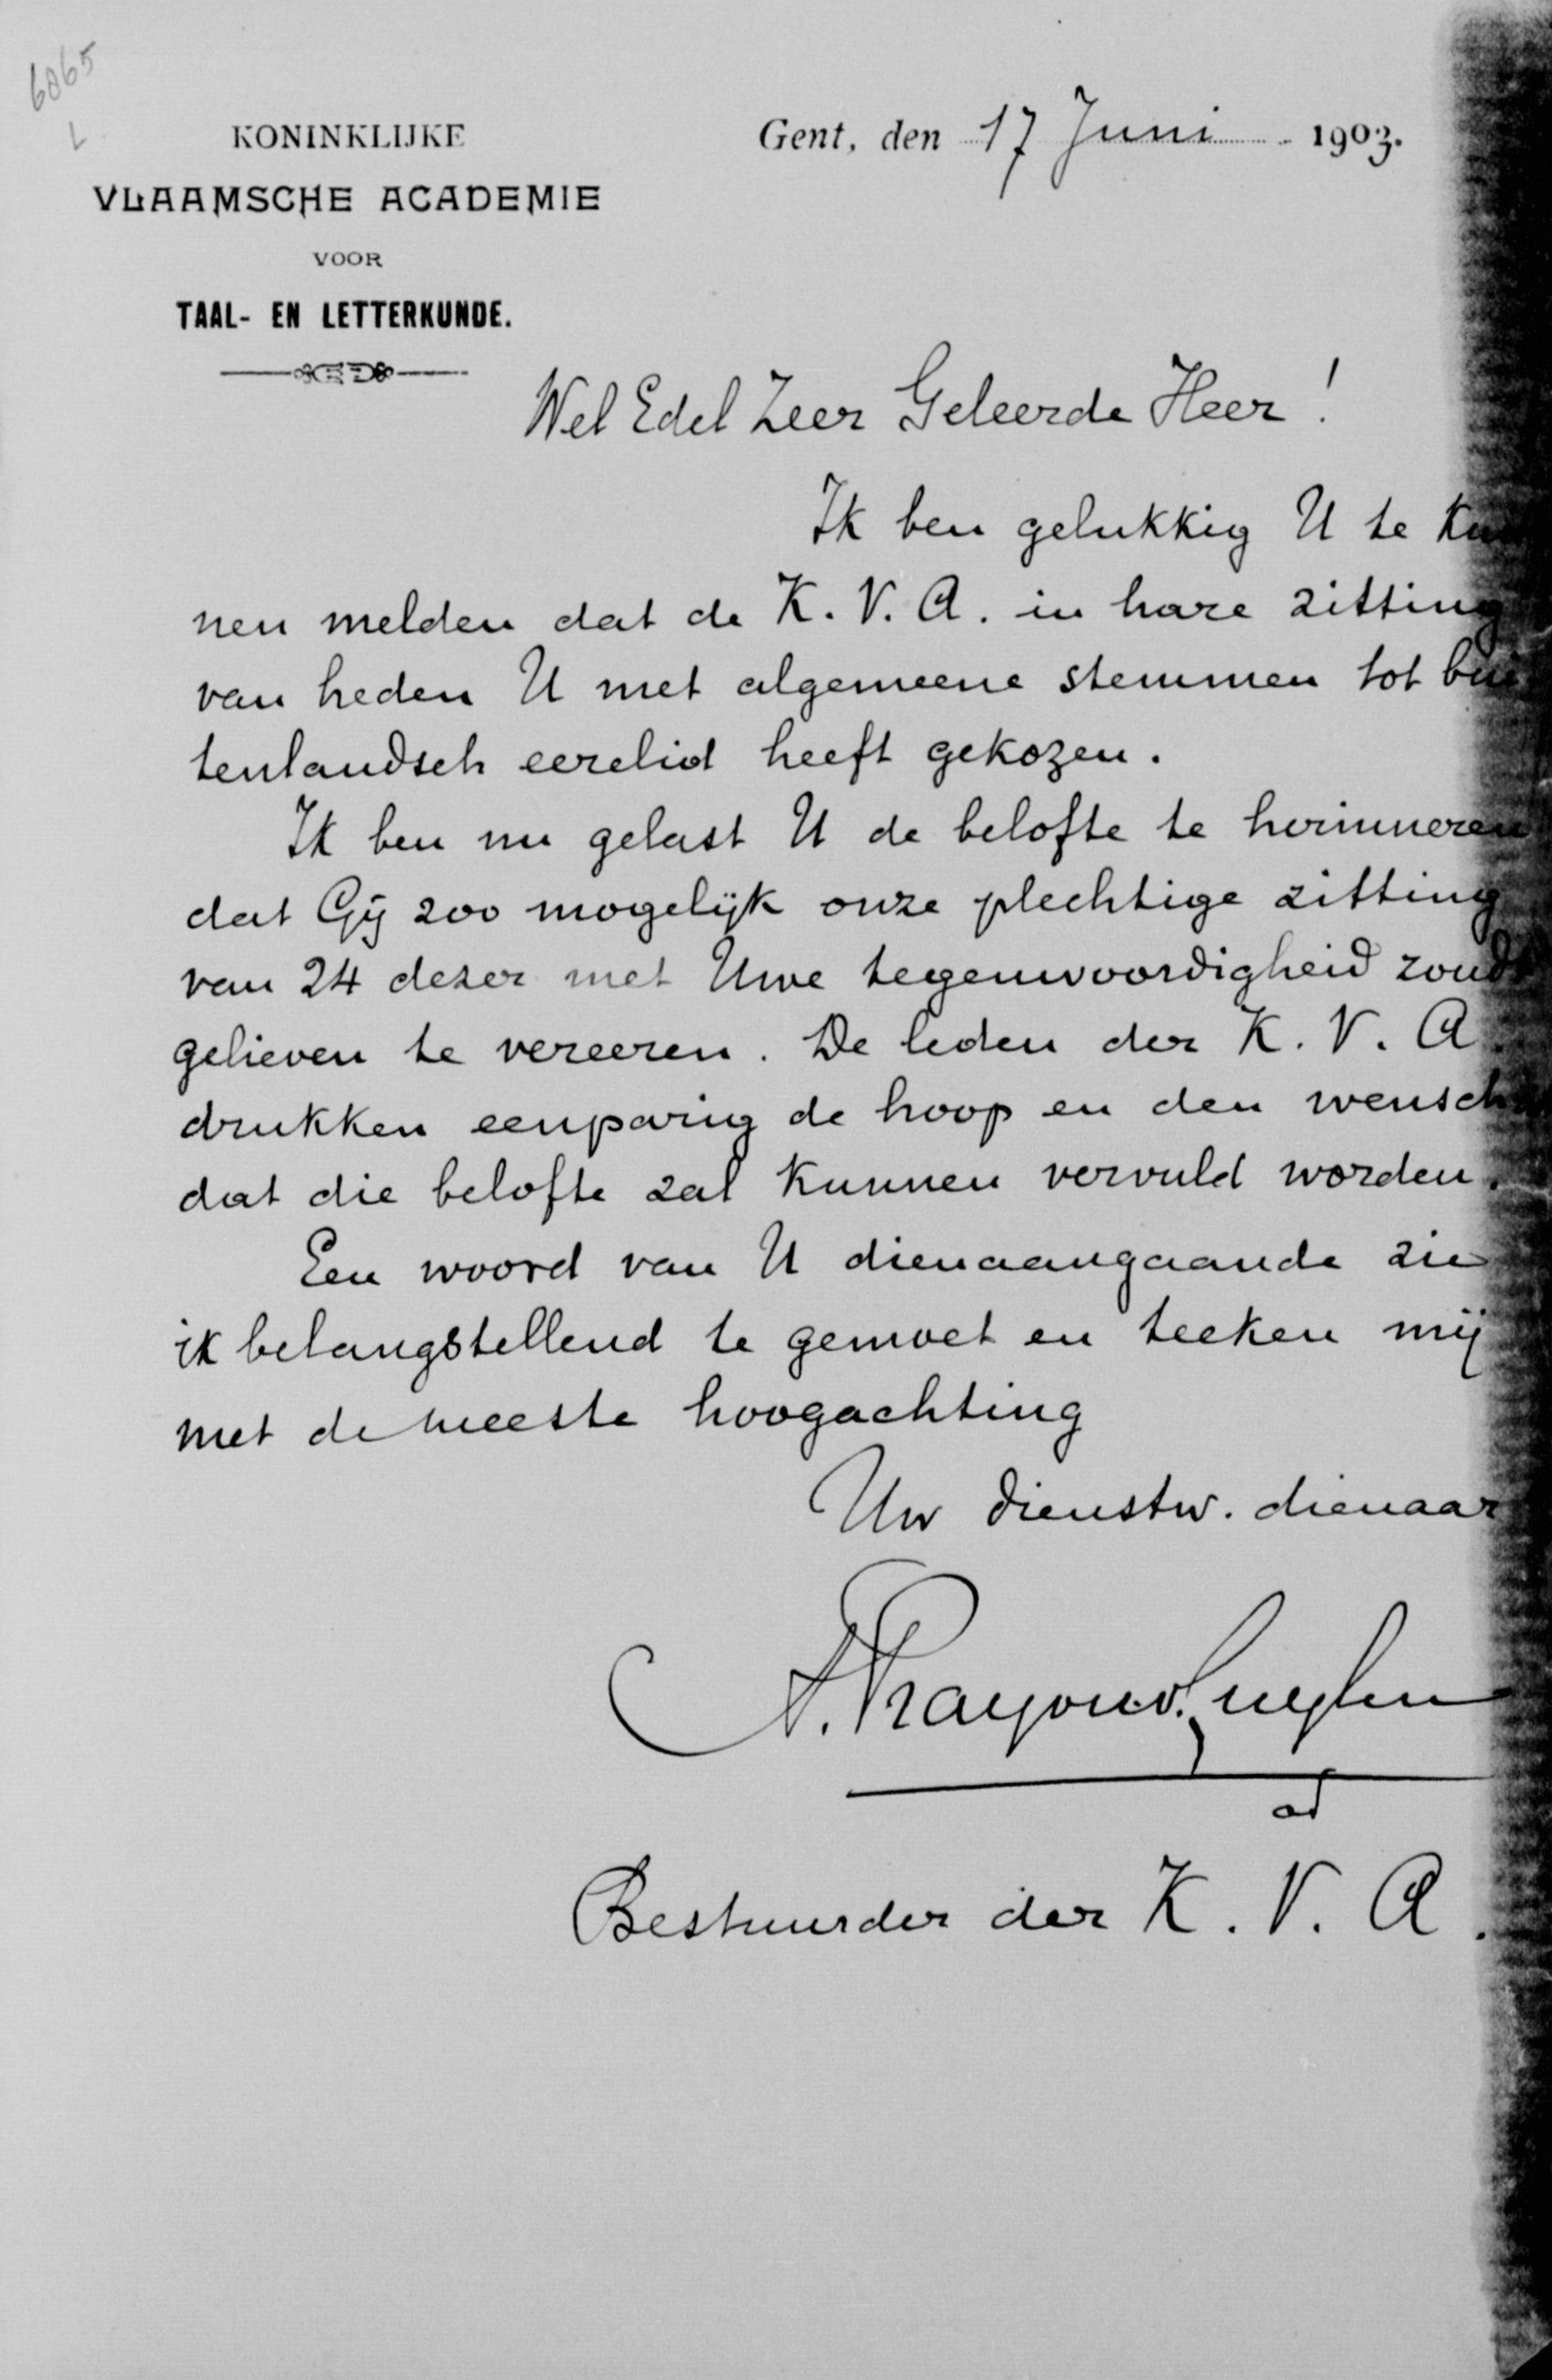 6865
L
KONINKLIJKE
VLAAMSCHE ACADEMIE
VOOR
TAAL- EN LETTERKUNDE.
Gent, den 17 Juni 1903.
Wel Edel Zeer Geleerde Heer!
Ik ben gelukkig U te kun
nen melden dat de K. V. A. in hare zitting
van heden U met algemeene stemmen tot bui
tenlandsch eerelid heeft gekozen.
Ik ben nu gelast U de belofte te herinneren
dat Gij zoo mogelijk onze plechtige zitting
van 24 dezer met Uwe tegenwoordigheid zoudt
gelieven te vereeren. De leden der K. V. A.
drukken eenparig de hoop en den wensch
dat die belofte zal kunnen vervuld worden.
Een woord van U dienaangaande zie
ik belangstellend te gemoet en teeken mij
met de meeste hoogachting
Uw dienstw. dienaar
A. Prayon v. Zuylen
Bestuurder der K. V. A.